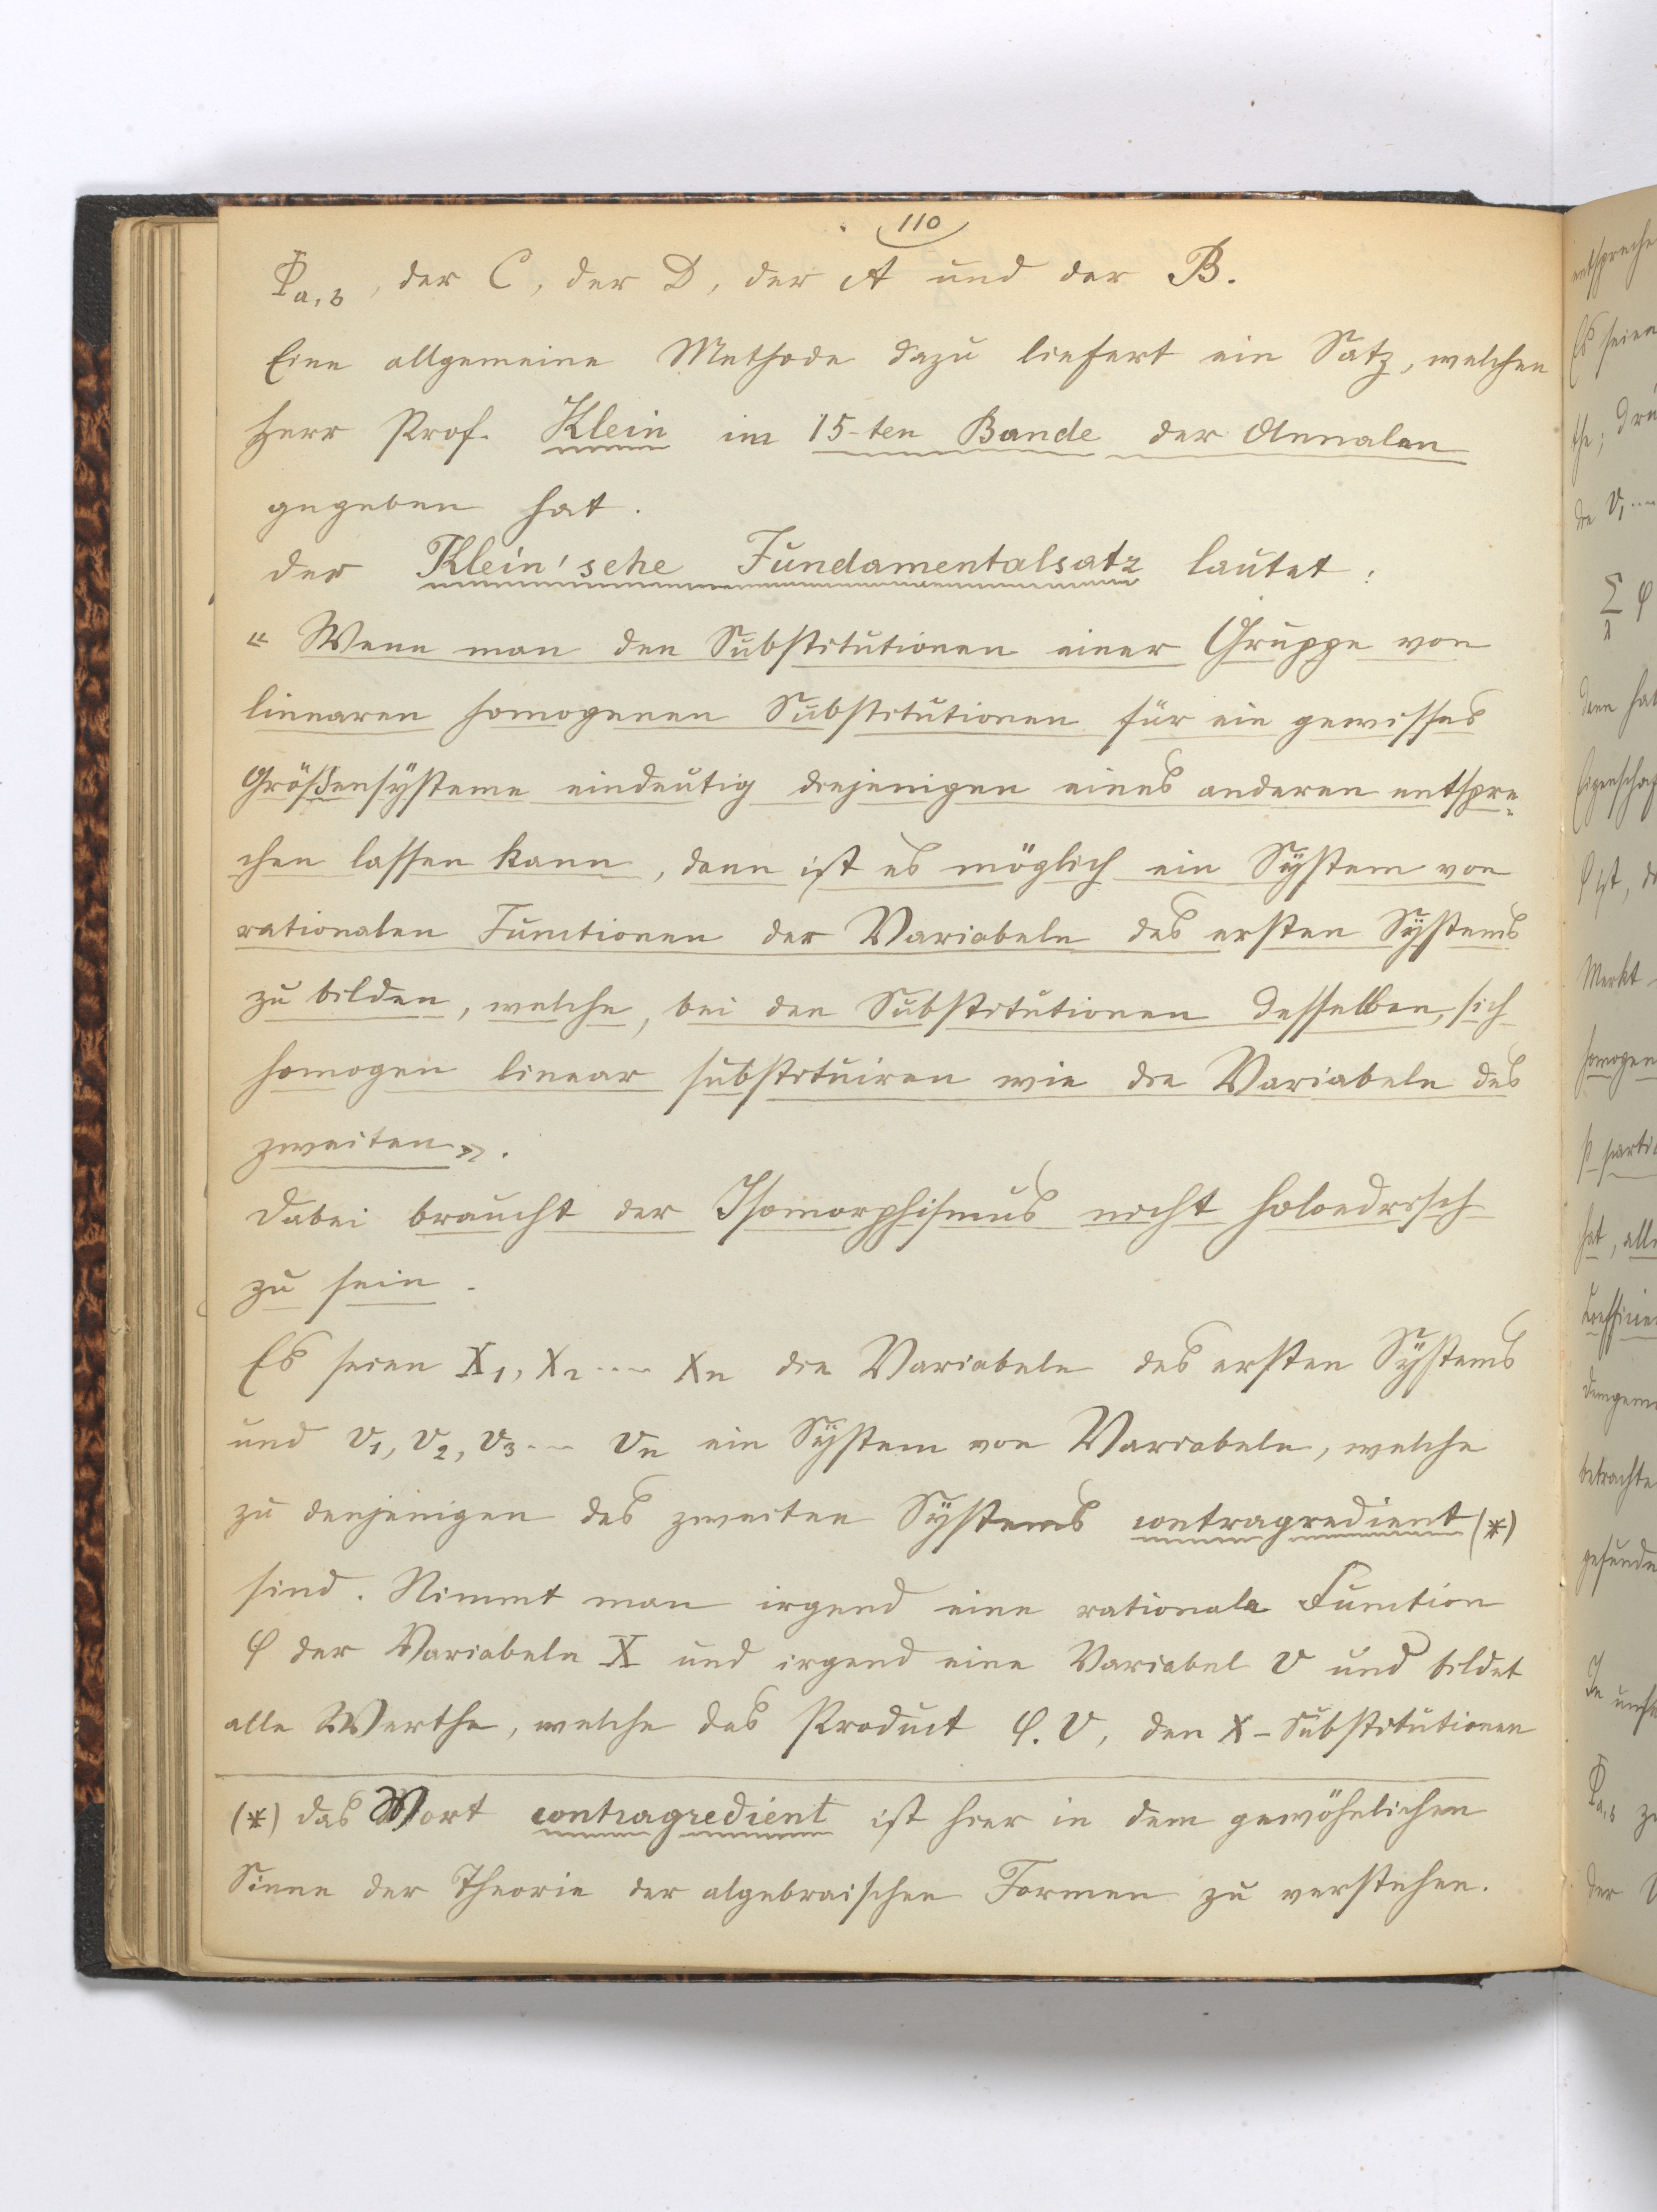 110
Φa,3, der C, der D, der A und der B.
Eine allgemeine Methode dazu liefert ein Satz, welchen
Herr Prof. Klein im 15-ten Bande der Annalen
gegeben hat.
der Klein'sche Fundamentalsatz lautet:
« Wenn man den Substitutionen einer Gruppe von
linearen homogenen Substitutionen für ein gewisses
Größensysteme eindeutig diejenigen eines anderen entspre„
chen lassen kann, dann ist es möglich ein System von
rationalen Functionen der Variabeln des ersten Systems
zu bilden, welche, bei den Substitutionen desselben, sich
homogen linear substituiren wie die Variabeln des
zweiten».
Dabei braucht der Isomorphismus nicht holoedrisch
zu sein.
Es seien X1, X2 .... Xn die Variabeln des ersten Systems
und v1, v2, v3 ... vn ein System von Variabeln, welche
zu denjenigen des zweiten Systems contragredient (*)
sind. Nimmt man irgend eine rationale Function
φ der Variabeln X und irgend eine Variabel v und bildet
alle Werthe, welche das Product φ.v, den X-Substitutionen
(*) das Wort contragredient ist hier in dem gewöhnlichen
Sinne der Theorie der algebraischen Formen zu verstehen.